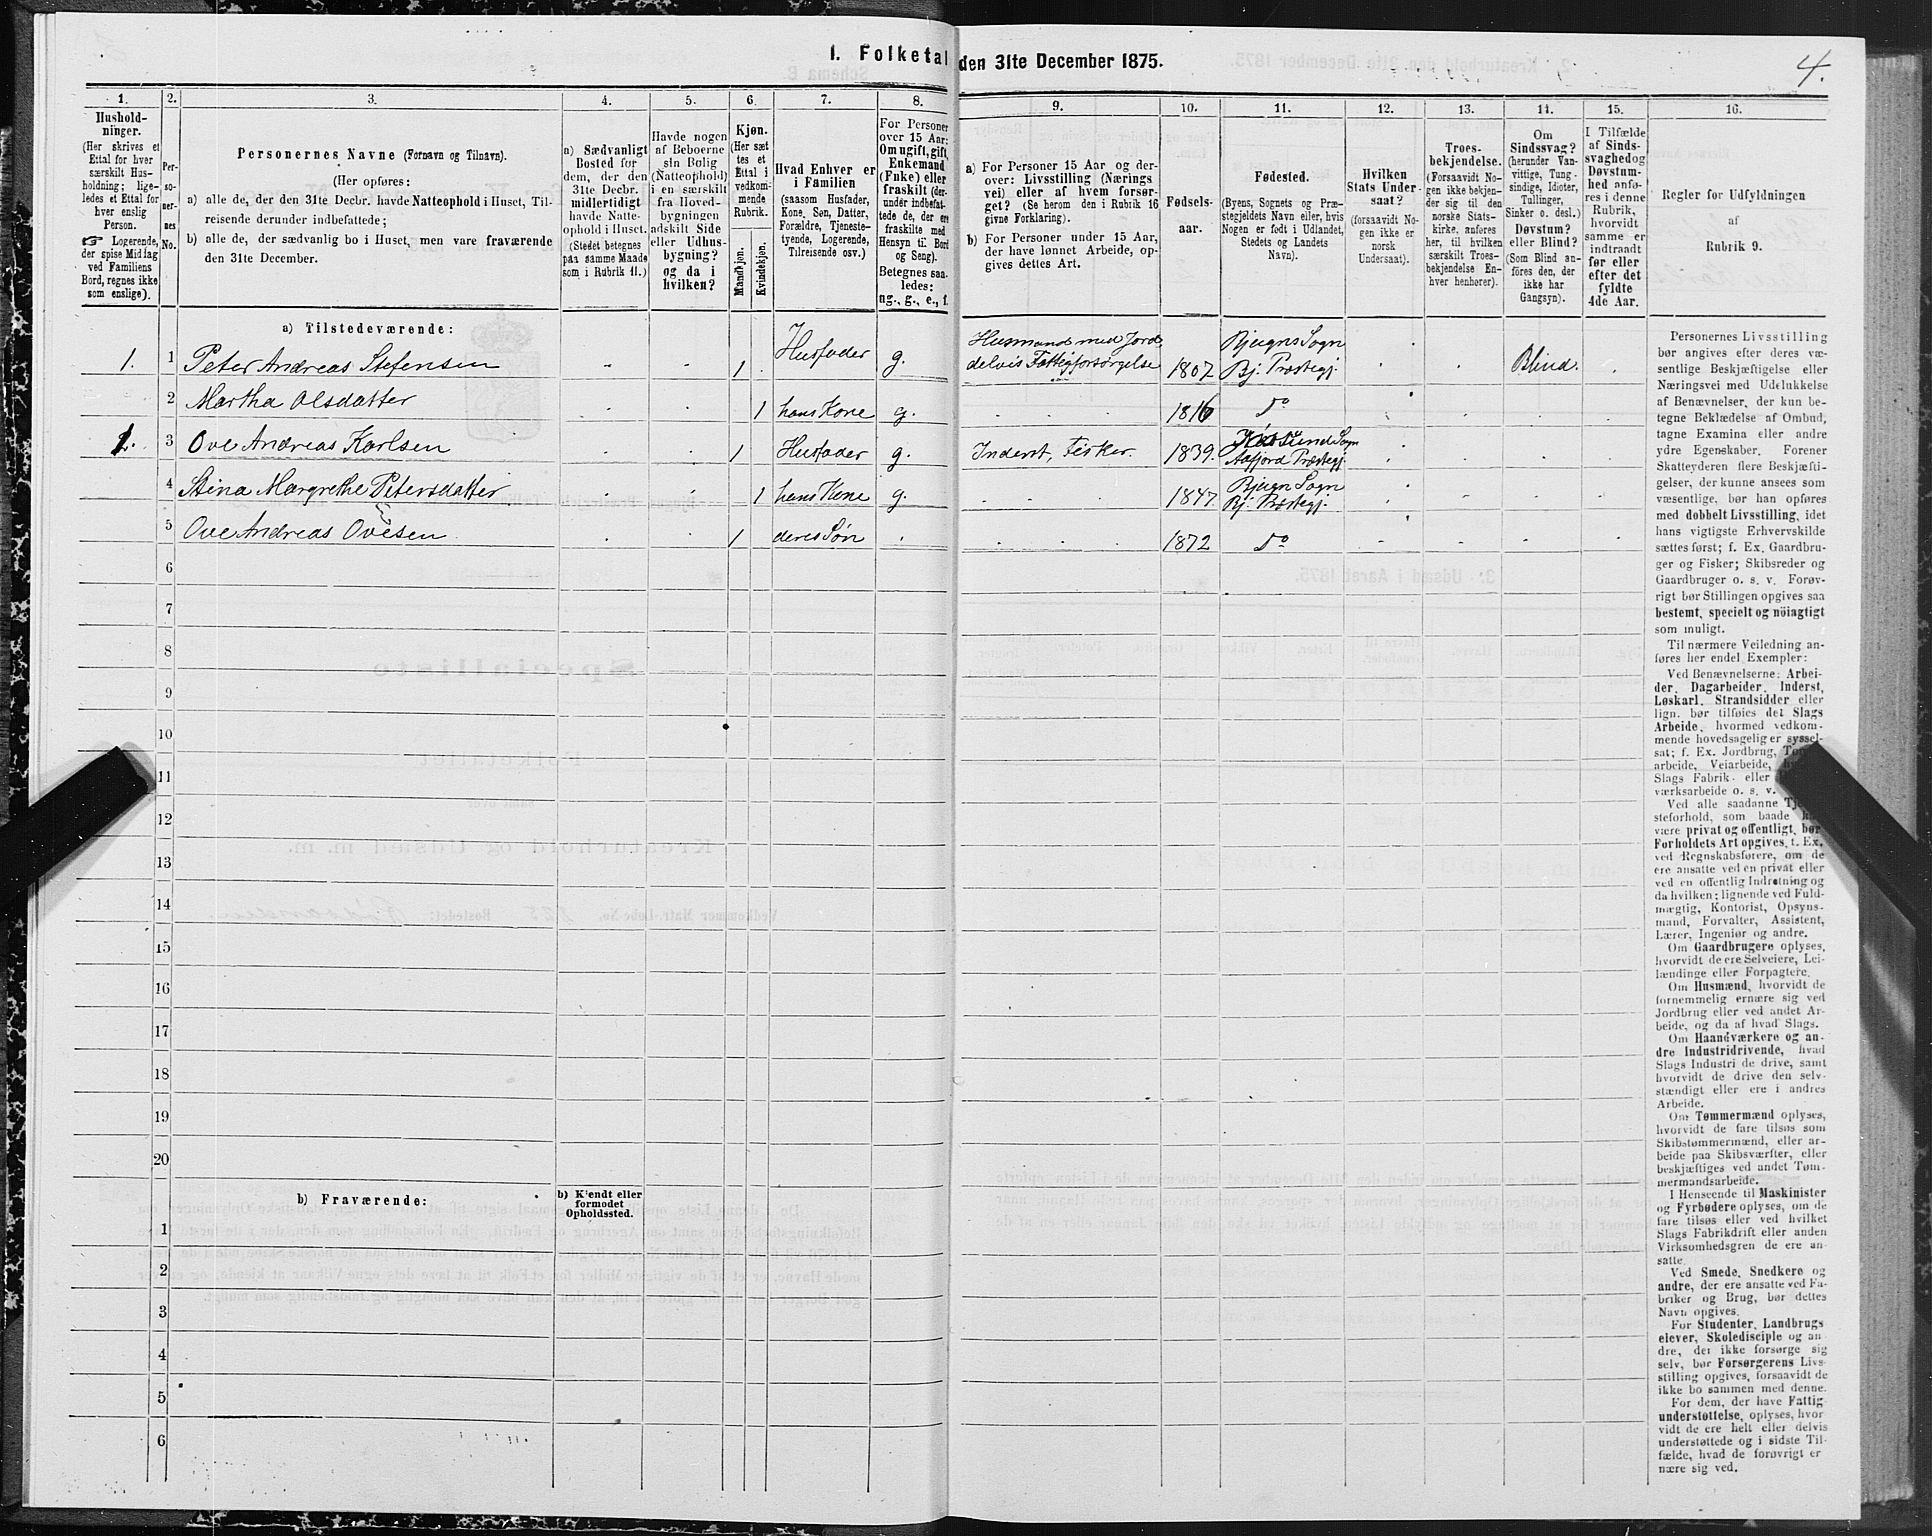 I. Folketal den 31te December 1875.
4.
1.
Hushold-
ninger.
(Her skrives et
Ettal for hver
særskilt Hus-
holdning; lige-
ledes et Ettal for
hver enslig
Person.
☞ Logerende,
der spise Middag
ved Familiens
Bord, regnes ikke
som enslige).
2.
Per-
so-
ner-
nes
No.
3.
Personernes Navne (Fornavn og Tilnavn).
(Her opføres:
a) alle de, der den 31te Decbr. havde Natteophold i Huset, Til-
reisende derunder indbefattede;
b) alle de, der sædvanlig bo i Huset, men vare fraværende
den 31te December.
4.
a) Sædvanligt
Bosted for
dem, der den
31te Decbr.
midlertidigt
havde Natte-
ophold i Huset.
(Stedet betegnes
paa samme Maade
som i Rubrik 11.)
5.
Havde nogen
af Beboerne
sin Bolig
(Natteophold)
i en særskilt
fra Hoved-
bygningen
adskilt Side
eller Udhus-
bygning?
og da i
hvilken?
6.
Kjøn.
(Her sæt
tes et
Ettal i
vedkom-
mende
Rubrik.
Mandkjøn.
Kvindekjøn.
7.
Hvad Enhver er
i Familien
(saasom Husfader,
Kone, Søn, Datter,
Forældre, Tjeneste-
tyende, Logerende,
Tilreisende osv.)
8.
For Personer
over 15 Aar:
Om ugift, gift,
Enkemand
(Enke) eller
fraskilt (der-
under indbefat-
tede de, der ere
fraskilte med
Hensyn til Bord
og Seng).
Betegnes saa-
ledes:
ug., g., e., f.
9.
a) For Personer 15 Aar og der-
over: Livsstilling (Nærings
vei) eller af hvem forsør-
get? (Se herom den i Rubrik 16
givne Forklaring).
b) For Personer under 15 Aar,
der have lønnet Arbeide, op-
gives dettes Art.
10.
Fødsels-
aar.
11.
Fødested.
(Byens, Sognets og Præ-
stegjeldets Navn eller, hvis
Nogen er født i Udlandet,
Stedets og Landets
Navn).
12.
Hvilken
Stats Under-
saat?
(forsaavidt No-
gen ikke er
norsk
Undersaat).
13.
Troes-
bekjendelse.
(Forsaavidt No-
gen ikke bekjen-
der sig til den
norske Stats-
kirke, anføres
her, til hvilken
særskilt Troes-
bekjendelse En-
hver henhører).
14.
Om
Sindssvag?
(herunder Van-
vittige, Tung-
sindige, Idioter,
Tullinger,
Sinker o. desl.)
Døvstum?
eller Blind?
(Som Blind an-
føres den, der
ikke har
Gangsyn).
15.
I Tilfælde
af Sinds-
svaghed og
Døvstum-
hed anfø-
res i denne
Rubrik,
hvorvidt
samme er
indtraadt
før eller
efter det
fyldte
4de Aar.
16.
Regler for Udfyldningen
af
Rubrik 9.
a) Tilstedeværende:
1. 1 Peter Andreas Stefensen 1 Husfader g. Husmand med Jord delvis Fattigforsørgelse 1807 Bjugns Sogn Bj. Præstegj. Blind.
2 Martha Olsdatter 1 hans Kone g. 1816 Do
1. 3 Ove Andreas Karlsen 1 Husfader g. Inderst, Fisker. 1839. Sogn Aafjord Præstegj.
4 Stina Margrethe Petersdatter 1 hans Kone g. 1847. Bjugn Sogn Bj. Præstegj.
5 Ove Andreas Ovesen 1 deres Søn 1872 Do
6
7
8
9
10
11
12
13
14
15
16
17
18
19
20
b) Fraværende:
b) Kjendt eller
formodet
Opholdssted.
1
2
3
4
5
6
Personernes Livsstilling
bør angives efter deres væ-
sentlige Beskjæftigelse eller
Næringsvei med Udelukkelse
af Benævnelser, der kun be-
tegne Beklædelse af Ombud,
tagne Examina eller andre
ydre Egenskaber. Forener
Skatteyderen flere Beskjæfti-
gelser, der kunne ansees som
væsentlige, bør han opføres
med dobbelt Livsstilling, idet
hans vigtigste Erhvervskilde
sættes først; f. Ex. Gaardbru-
ger og Fisker; Skibsreder og
Gaardbruger o. s. v. Forøv-
rigt bør Stillingen opgives saa
bestemt, specielt og nöiagtigt
som muligt.
Til nærmere Veiledning an-
føres her endel Exempler:
Ved Benævnelserne: Arbei-
der, Dagarbeider, Inderst,
Løskarl, Strandsidder eller
lign. bør tilføies det Slags
Arbeide, hvormed vedkom-
mende hovedsagelig er syssel-
sat; f. Ex. Jordbrug,
arbeide, Veiarbeide,
Slags Fabrik- eller
værksarbeide o. s. v.
Ved alle saadanne
steforhold, som baade
være privat og offentligt, bør
Forholdets Art opgives, f. Ex.
ved Regnskabsførere, om de
ere ansatte ved en privat eller
ved en offentlig Indretning og
da hvilken; lignende ved Fuld-
mægtig, Kontorist, Opsyns-
mand, Forvalter, Assistent,
Lærer, Ingeniør og andre.
Om Gaardbrugere oplyses,
hvorvidt de ere Selveiere, Lei-
lændinge eller Forpagtere.
Om Husmænd, hvorvidt de
fornemmelig ernære sig ved
Jordbrug eller ved andet Ar-
beide, og da af hvad Slags.
Om Haandværkere og an-
dre Industridrivende, hvad
Slags Industri de drive, samt
hvorvidt de drive den selv-
stændigt eller ere i andres
Arbeide.
Om Tømmermænd oplyses,
hvorvidt de fare tilsøs som
Skibstømmermænd, eller ar-
beide paa Skibsværfter, eller
beskjæftiges ved andet Tøm-
mermandsarbeide.
I Henseende til Maskinister
og Fyrbødere oplyses, om de
fare tilsøs eller ved hvilket
Slags Fabrikdrift eller anden
Virksomhedsgren de ere an-
satte.
Ved Smede, Snedkere og
andre, der ere ansatte ved Fa-
briker og Brug, bør dettes
Navn opgives.
For Studenter, Landbrugs
elever, Skoledisciple og an-
dre, der ikke forsørge sig
selv, bør Forsørgerens Livs-
stilling opgives, forsaavidt de
ikke bo sammen med denne.
For dem, der have Fattig-
understøttelse, oplyses, hvor
vidt de ere helt eller delvis
understøttede og i sidste Til-
fælde, hvad de forøvrigt er
nære sig ved.